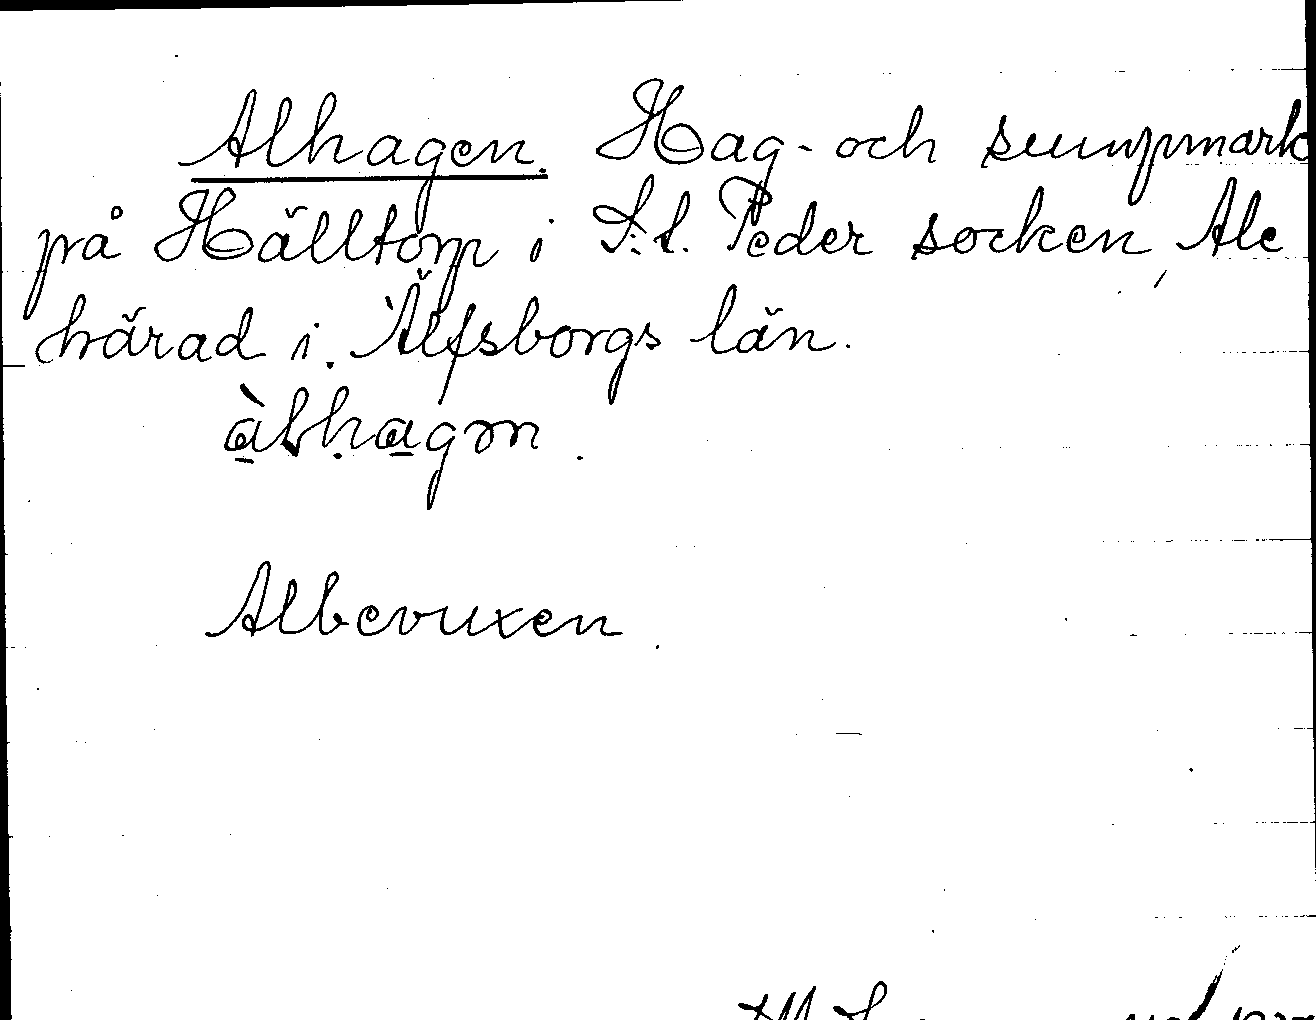 Alhagen. Hag- och sumpmark
på Hälltorp i S:t. Peder socken, Ale
härad i Älfsborgs län.
àlhagən.
Albevuxen.